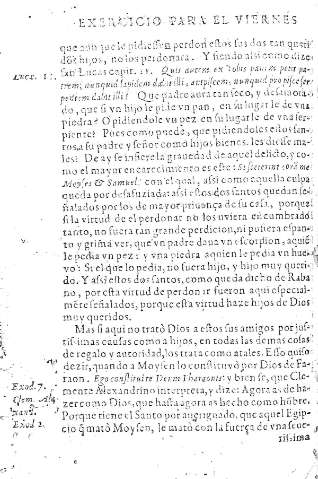 EXERCICIO PARA EL VIERNES
que aun que le pidiessen perdon estos sus dos tan queri-
dos hijos, no los perdonara. Y siendo assi como dize
San Lucas capit. 11. Quis autem ex vobis patrem petit pa-
Lucæ. 11.
nem, nunquid lapidem dabit illi, aut piscem, nunquid pro pisce ser-
pentem dabit illi? Que padre aura tan seco, y desamora-
do, que si vn hijo le pide vn pan, en su lugar le de vna
piedra? O pidiendole vn pez en su lugar le de vna ser-
piente? Pues como puede, que pidiendole estos san-
tos a su padre y señor como hijos bienes, les diesse ma-
les? De ay se infiere la grauedad de aquel delicto, y co-
mo el mayor encarecimiento es este: Si steterint corã me
Moyses & Samuel: con el qual, assi como aquella culpa
queda por desafuziada: assi estos dos santos quedan se-
ñalados por los de mayor priuança de su casa, porque
si la virtud de el perdonar no los vuiera encumbrado
tanto, no fuera tan grande perdicion, ni pusiera espan-
to y grima ver, que vn padre daua vn escorpion, a quié
le pedia vn pez: y vna piedra a quien le pedia vn hue-
vo: Si el que lo pedia, no fuera hijo, y hijo muy queri-
do. Y assi estos dos santos, como que da dicho de Raba
no, por esta virtud de perdon ar fueron aqui especial-
mente señalados, porque esta virtud haze hijos de Dios
muy queridos.
Mas si aqui no trató Dios a estos sus amigos por jus-
tissimas causas como a hijos, en todas las demas cosas
de regalo y autoridad, los trata como a tales. Esso quiso
dezir, quando a Moysen lo constituyó por Dios de Fa-
raon. Ego constitui te Deum Pharaonis: y bien se, que Cle-
Exod. 7.
mente Alexandrino interpreta, y dize: Agora as de ha-
Clem. Alex.
zer como Dios, que hasta agora as hecho como hõbre.
Porque tiene el Santo por aueriguado, que aquel Egip-
Exod. 2.
cio q̃ mató Moysen, le mató con la fuerça de vna seue-
rissima